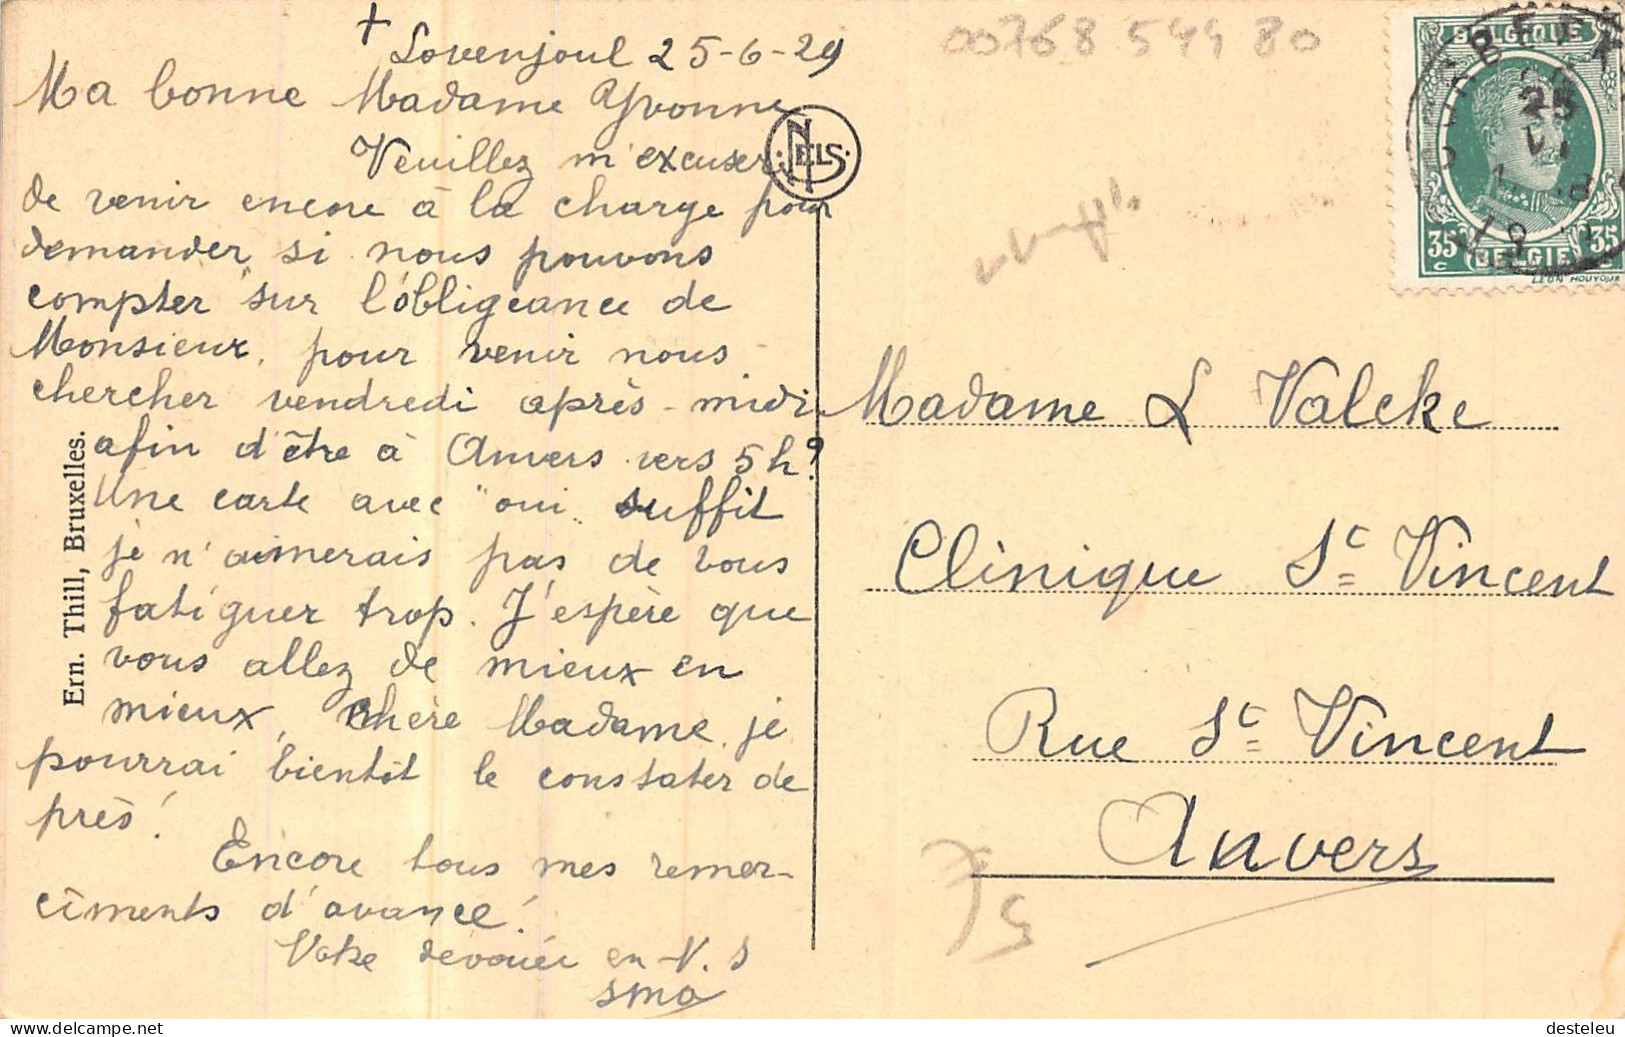 +
Lovenjoul 25-6-29
Ma bonne Madame Yvonne
Veuillez m'excuser
de venir encore à la charge pour
demander si nous pouvons
compter sur l'obligeance de
Monsieur, pour venir nous
chercher vendredi après-midi
afin d'être à Anvers vers 5h?
Une carte avec "oui" suffit
je n'aimerais pas de vous
fatiguer trop. J'espère que
vous allez de mieux en
mieux, chère Madame, je
pourrai bientôt le constater de
près!
Encore tous mes remer-
cîments d'avance!
Votre dévouée en N. S
SMO
Ern. Thill, Bruxelles.
NELS
00768 549 80
BELGIQUE
25
VI
35 c
BELGIË
35
LEON HOUYOUX
Madame L Valcke
Clinique St Vincent
Rue St Vincent
Anvers
75
Delcampe.net
desteleu